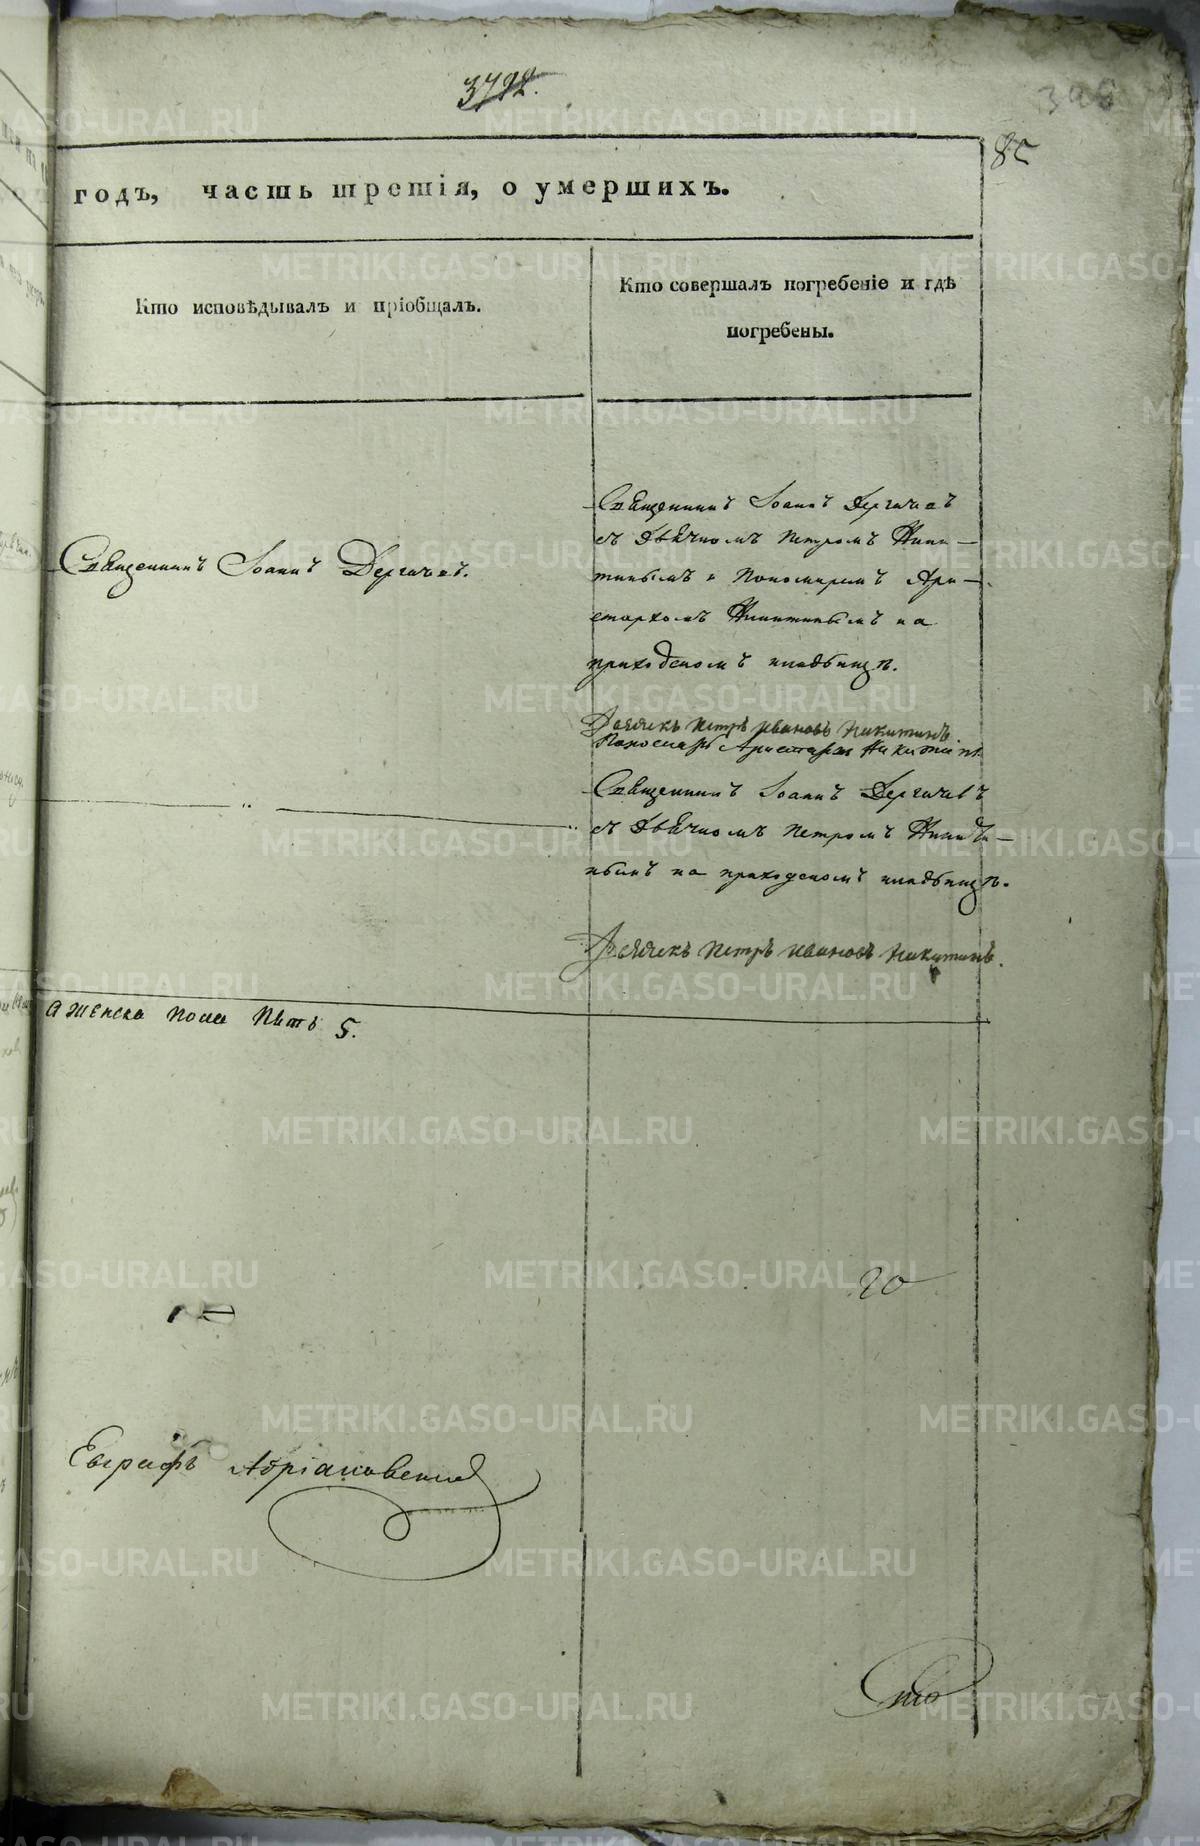 3792.
396
85
годъ, часть третія, о умершихъ.
Кто исповѣдывалъ и пріобщалъ.
Кто совершалъ погребеніе и гдѣ
погребены.
Священникъ Іоаннъ Дергачевъ.
Священникъ Іоаннъ Дергачевъ
съ Дьячкомъ Петромъ Ники-
тинымъ и Пономаремъ Ари-
стархомъ Никитинымъ на
приходскомъ кладбищѣ.
Дьячекъ Петръ Ивановъ Никитинъ.
Пономарь Аристархъ Никитинъ
Священникъ Іоаннъ Дергачевъ
съ Дьячкомъ Петромъ Никити-
нымъ на приходскомъ кладбищѣ.
Дьячекъ Петръ Ивановъ Никитинъ.
а женска пола пять 5.
20
Евграфъ Адріановский
METRIKI.GASO-URAL.RU